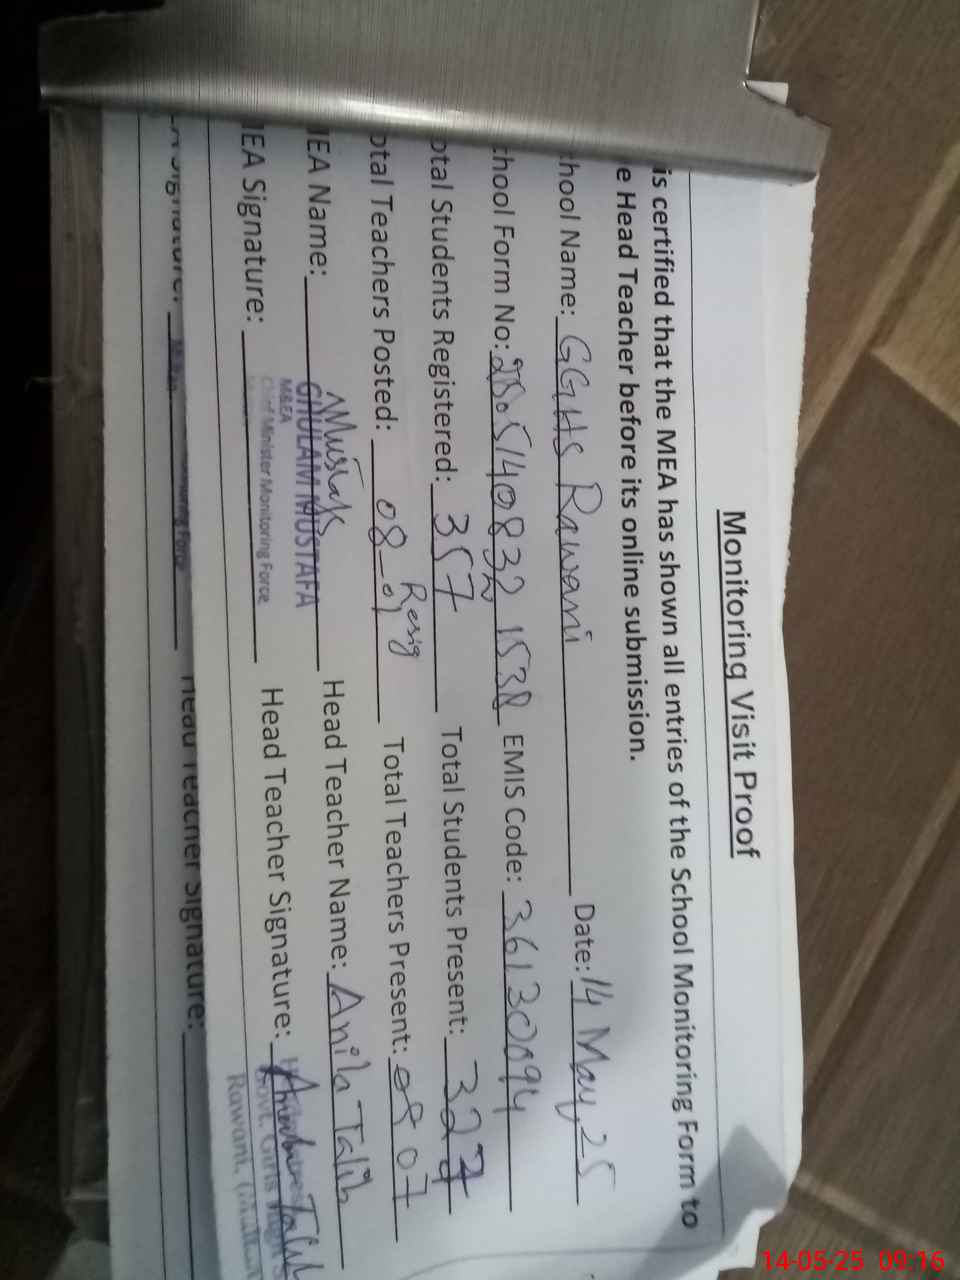 Monitoring Visit Proof
is certified that the MEA has shown all entries of the School Monitoring Form to
e Head Teacher before its online submission.
hool Name: GGHS Rawani Date: 14 May, 25
hool Form No: EMIS Code: 36130094
otal Students Registered: 357 Total Students Present: 327
Resig
otal Teachers Posted: 08-01 Total Teachers Present: 07
IEA Name: Head Teacher Name: Anila Talib
GHULAM MUSTAFA
M&EA
Chief Minister Monitoring Force
IEA Signature: Head Teacher Signature:
Govt. Girls High S
Rawani,
Head Teacher Signature:
14-05-25 09:16